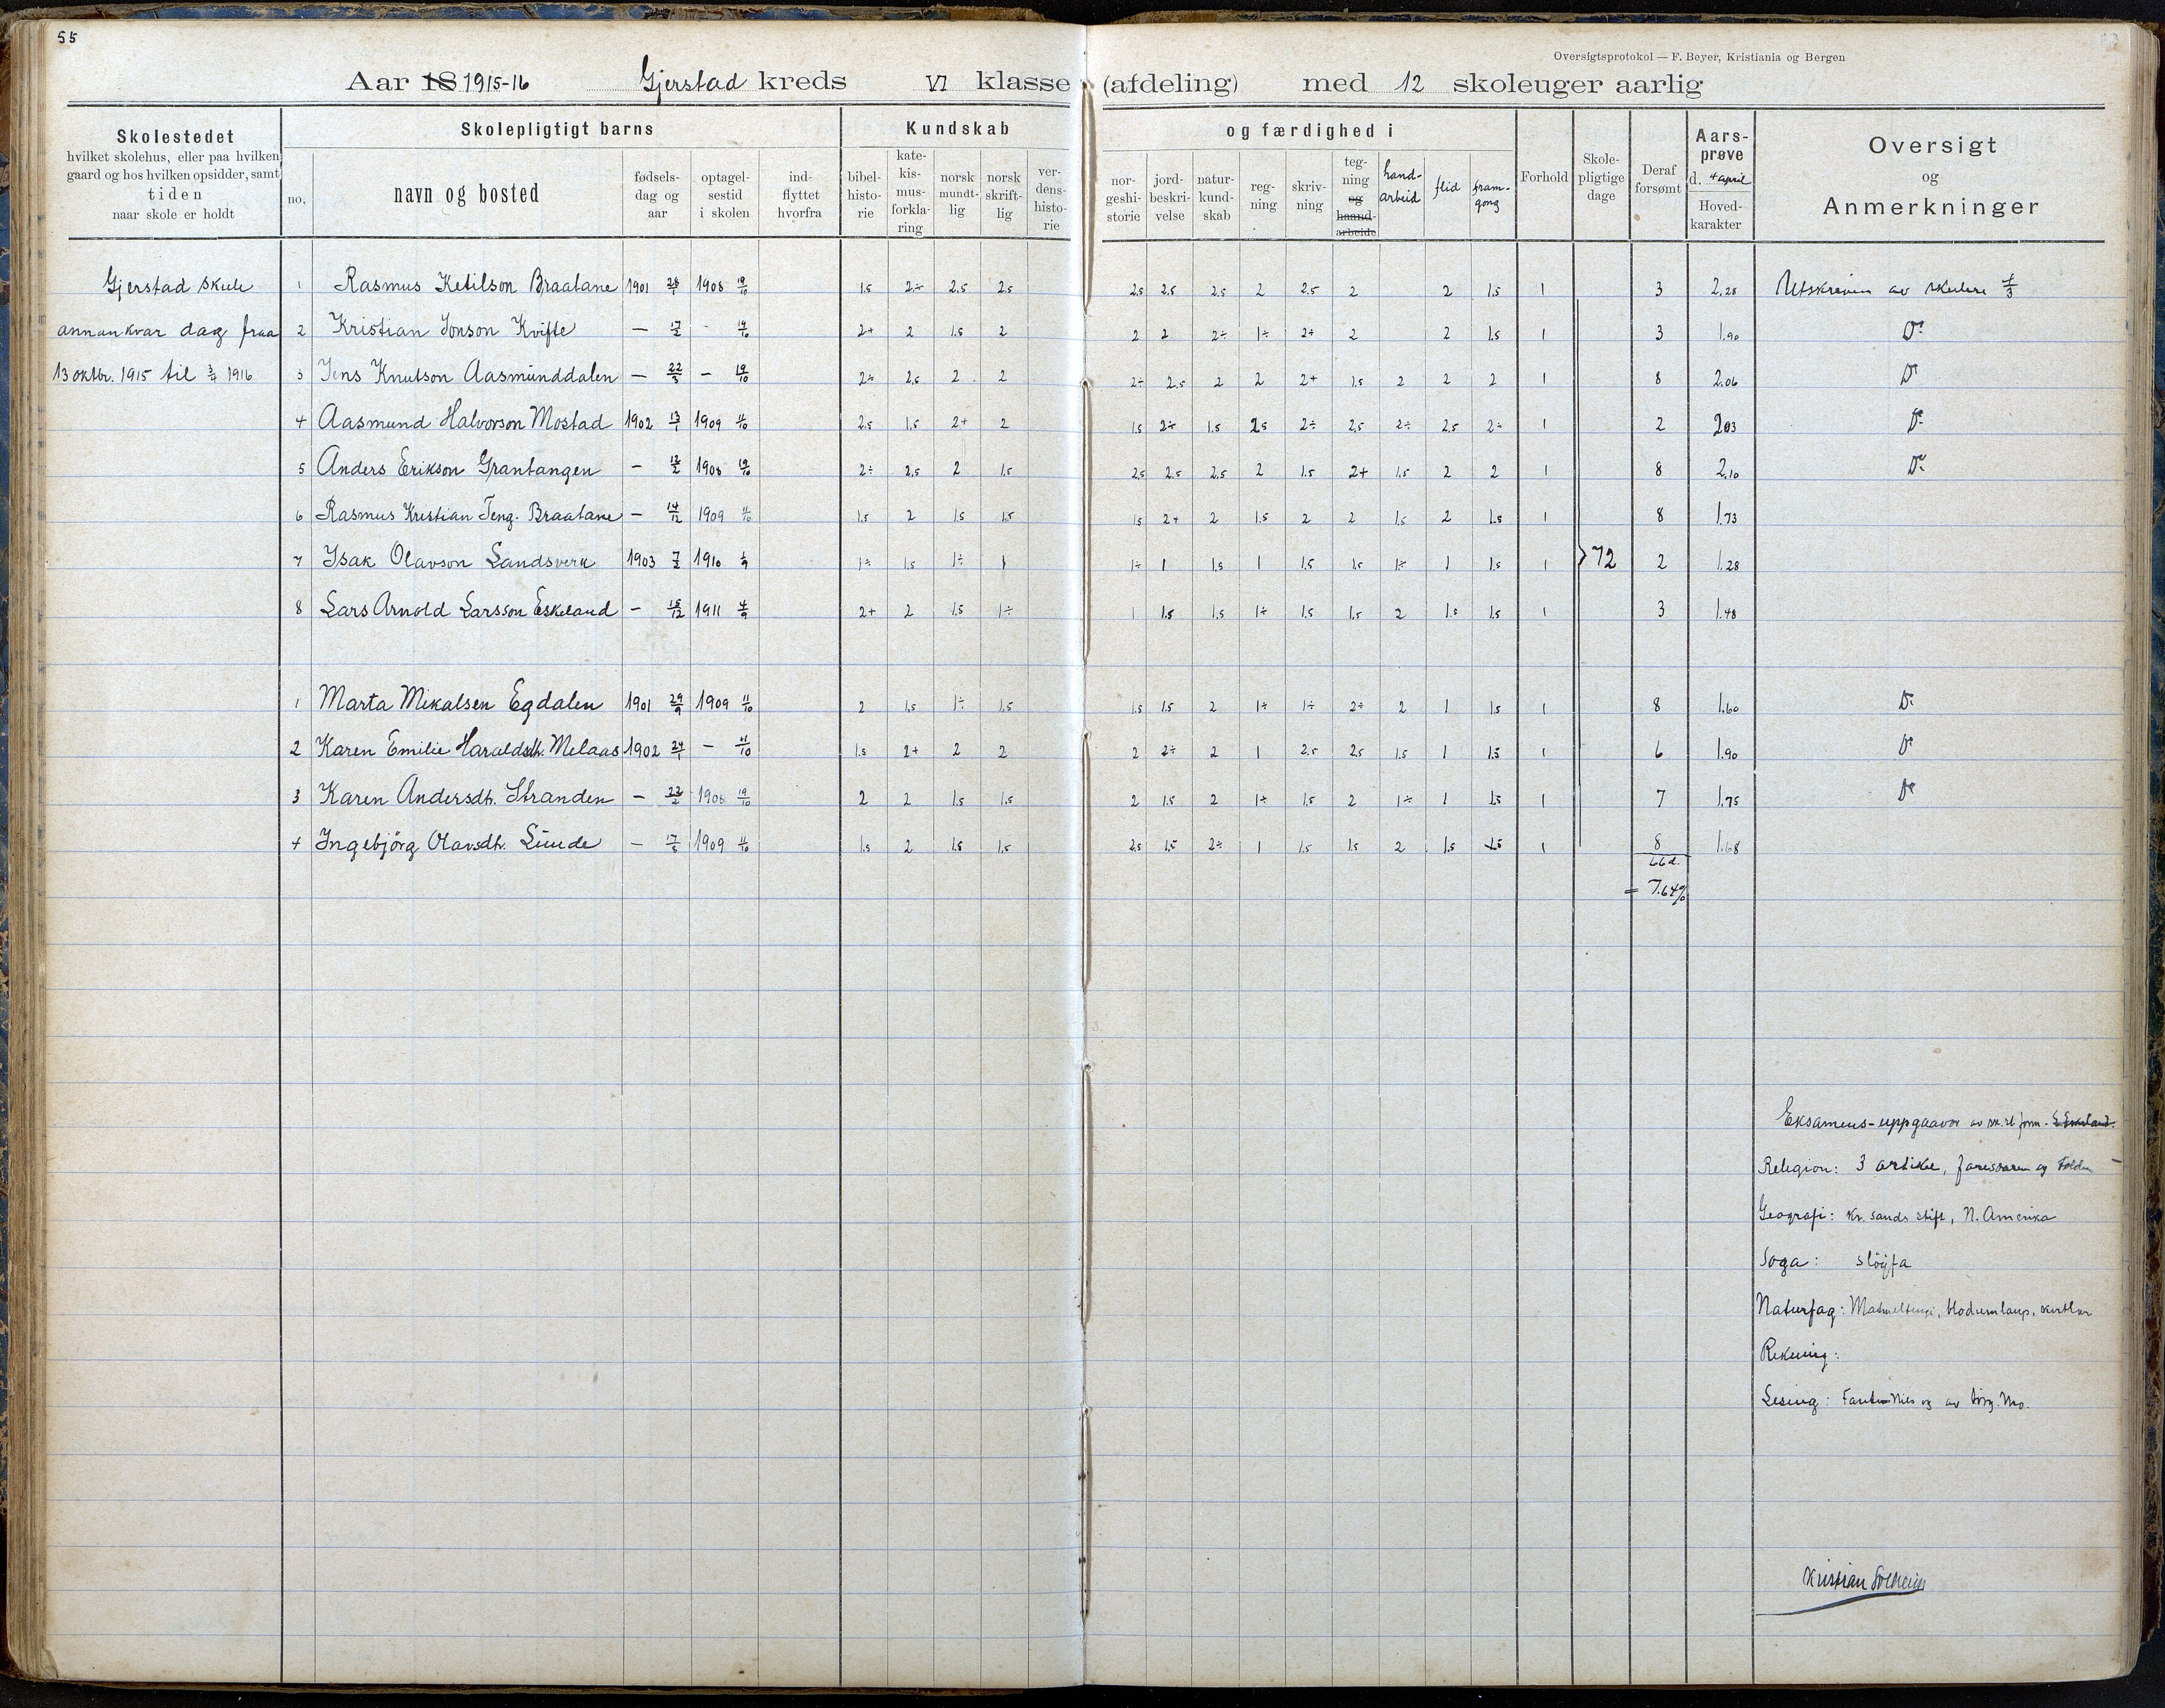 55
Oversigtsprotokol — F. Beyer, Kristiania og Bergen
Aar 18 1915-16 Gjerstad kreds VI klasse (afdeling) med 12 skoleuger aarlig
Skolestedet
hvilket skolehus, eller paa hvilken
gaard og hos hvilken opsidder, samt
tiden
naar skole er holdt
Skolepligtigt barns
no. navn og bosted
fødsels-
dag og
aar
optagel-
sestid
i skolen
ind-
flyttet
hvorfra
Kundskab og færdighed i
bibel-
histo-
rie
kate-
kis-
mus-
forkla-
ring
norsk
mundt-
lig
norsk
skrift-
lig
ver-
dens-
histo-
rie
nor-
geshi-
storie
jord-
beskri-
velse
natur-
kund-
skab
reg-
ning
skriv-
ning
teg-
ning
og
haand-
arbeide
hand-
arbeid
flid
fram-
gong
Forhold
Skole-
pligtige
dage
Deraf
forsømt
Aars-
prøve
d. 4 april
Hoved-
karakter
Oversigt
og
Anmerkninger
Gjerstad skule
annankvar dag fraa
13 oktbr. 1915 til 3/4 1916
1 Rasmus Ketilson Braatane 1901 28/1 1908 19/10 1.5 2÷ 2.5 2.5 2.5 2.5 2.5 2 2.5 2 2 1.5 1 3 2.28 Utskriven av skulen
2 Kristian Jonson Kvifte — 17/2 - 19/10 2+ 2 1.5 2 2 2 2÷ 1÷ 2+ 2 2 1.5 1 3 1.90 Do
3 Jens Knutson Aasmunddalen — 22/3 — 19/10 2÷ 2.5 2 2 2÷ 2.5 2 2 2+ 1.5 2 2 2 1 8 2.06 Do
4 Aasmund Halvorson Mostad 1902 13/1 1909 11/10 2.5 1.5 2+ 2 1.5 2÷ 1.5 2.5 2÷ 2.5 2÷ 2.5 2÷ 1 2 2.03 Do
5 Anders Erikson Grantangen — 12/2 1908 19/10 2÷ 2.5 2 1.5 2.5 2.5 2.5 2 1.5 2+ 1.5 2 2 1 8 2.10 Do
6 Rasmus Kristian Teng. Braatane — 14/12 1909 11/10 1.5 2 1.5 1.5 1.5 2+ 2 1.5 2 2 1.5 2 1.5 1 8 1.73
7 Isak Olavson Landsverk 1903 7/2 1910 1÷ 1.5 1÷ 1 1÷ 1 1.5 1 1.5 1.5 1÷ 1 1.5 1 72 2 1.28
8 Lars Arnold Larsson Eskeland — 15/12 1911 4/9 2+ 2 1.5 1÷ 1 1.5 1.5 1÷ 1.5 1.5 2 1.5 1.5 1 3 1.48
1 Marta Mikalsen Egdalen 1901 29/9 1909 11/10 2 1.5 1÷ 1.5 1.5 1.5 2 1÷ 1÷ 2÷ 2 1 1.5 1 8 1.60 Do
2 Karen Emilie Haraldsdt. Melaas 1902 24/1 — 11/10 1.5 2+ 2 2 2 2÷ 2 1 2.5 2.5 1.5 1 1.5 1 6 1.90 Do
3 Karen Andersdt. Stranden — 22/2 1908 19/10 2 2 1.5 1.5 2 1.5 2 1÷ 1.5 2 1÷ 1 1.5 1 7 1.75 Do
4 Ingebjörg Olavsdt. Lunde — 1909 11/10 1.5 2 1.5 1.5 2.5 1.5 2÷ 1 1.5 1.5 2 1.5 1.5 1 8 1.68
66 d.
= 7.64%
Eksamens-uppgaavor av
Religion: 3 artikel,
Geografi: Kr. sands stift, N. Amerika
Soga: slöyfa
Naturfag: blodumlaup, kirtlar
Rekning:
Lesing: og av
Kristian Solheim